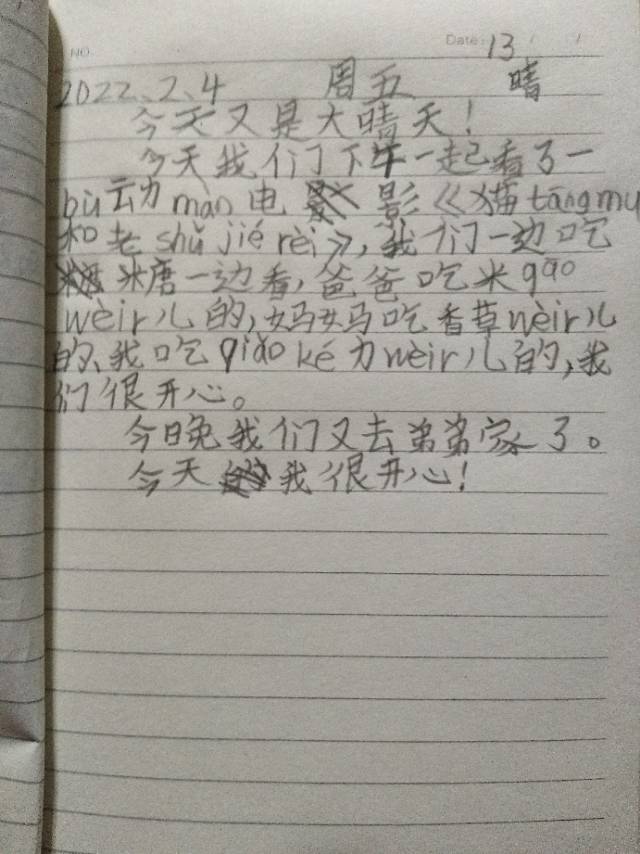 NO.
Date: 13 / /
2022、2、4 周五 晴
今天又是大晴天！
今天我们下午一起看了一
bù动màn电影《猫tāngmu
和老shǔ jié rèi》，我们一边吃
糖一边看，爸爸吃米gāo
wèir儿的，妈妈吃香草wèir儿
的、我吃qiǎo ké力wèir儿的，我
们很开心。
今日晚我们又去弟弟家了。
今天我很开心！